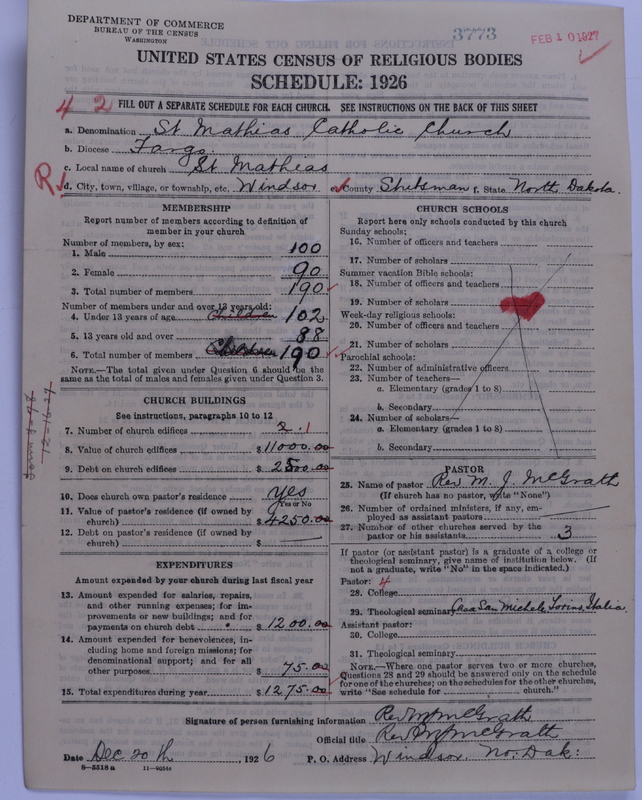 DEPARTMENT OF COMMERCE
BUREAU OF THE CENSUS
WASHINGTON
3773
FEB 10 1927
UNITED STATES CENSUS OF RELIGIOUS BODIES
SCHEDULE: 1926
4 2
FILL OUT A SEPARATE SCHEDULE FOR EACH CHURCH. SEE INSTRUCTIONS ON THE BACK OF THIS SHEET
a. Denomination St Mathias Catholic Church
b. Diocese Fargo.
c. Local name of church St Mathias
R
d. City, town, village, or township, etc. Windsor e. County Stutsman f. State North Dakota.
MEMBERSHIP
Report number of members according to definition of
member in your church
Number of members, by sex:
1. Male 100
2. Female 90
3. Total number of members 190
Number of members under and over 13 years old:
4. Under 13 years of age Children 102
5. 13 years old and over 88
6. Total number of members Children 190
NOTE.—The total given under Question 6 should be the
same as the total of males and females given under Question 3.
CHURCH BUILDINGS
See instructions, paragraphs 10 to 12
7. Number of church edifices 2. 1
8. Value of church edifices $11000.00
9. Debt on church edifices $2500.00
10. Does church own pastor's residence yes
Yes or No
11. Value of pastor's residence (if owned by
church) $4250.00
12. Debt on pastor's residence (if owned by
church) $
EXPENDITURES
Amount expended by your church during last fiscal year
13. Amount expended for salaries, repairs,
and other running expenses; for im-
provements or new buildings; and for
payments on church debt $1200.00
14. Amount expended for benevolences, in-
cluding home and foreign missions; for
denominational support; and for all
other purposes $75.00
15. Total expenditures during year $1275.00
CHURCH SCHOOLS
Report here only schools conducted by this church
Sunday schools:
16. Number of officers and teachers
17. Number of scholars
Summer vacation Bible schools:
18. Number of officers and teachers
19. Number of scholars
Week-day religious schools:
20. Number of officers and teachers
21. Number of scholars
Parochial schools:
22. Number of administrative officers
23. Number of teachers—
a. Elementary (grades 1 to 8)
b. Secondary
24. Number of scholars—
a. Elementary (grades 1 to 8)
b. Secondary
PASTOR
25. Name of pastor Rev M. J. McGrath
(If church has no pastor, write "None")
26. Number of ordained ministers, if any, em-
ployed as assistant pastors
27. Number of other churches served by the
pastor or his assistants 3
If pastor (or assistant pastor) is a graduate of a college or
theological seminary, give name of institution below. (If
not a graduate, write "No" in the space indicated.)
Pastor: 4
28. College
29. Theological seminary San Michele Torino, Italia.
Assistant pastor:
30. College
31. Theological seminary
NOTE.—Where one pastor serves two or more churches,
Questions 28 and 29 should be answered only on the schedule
for one of the churches; on the schedules for the other churches,
write "See schedule for church."
Signature of person furnishing information Rev M McGrath
Official title Rev M McGrath
Date Dec 20 th, 1926 P. O. Address Windsor. No. Dak:
8—5518a 11—9054a